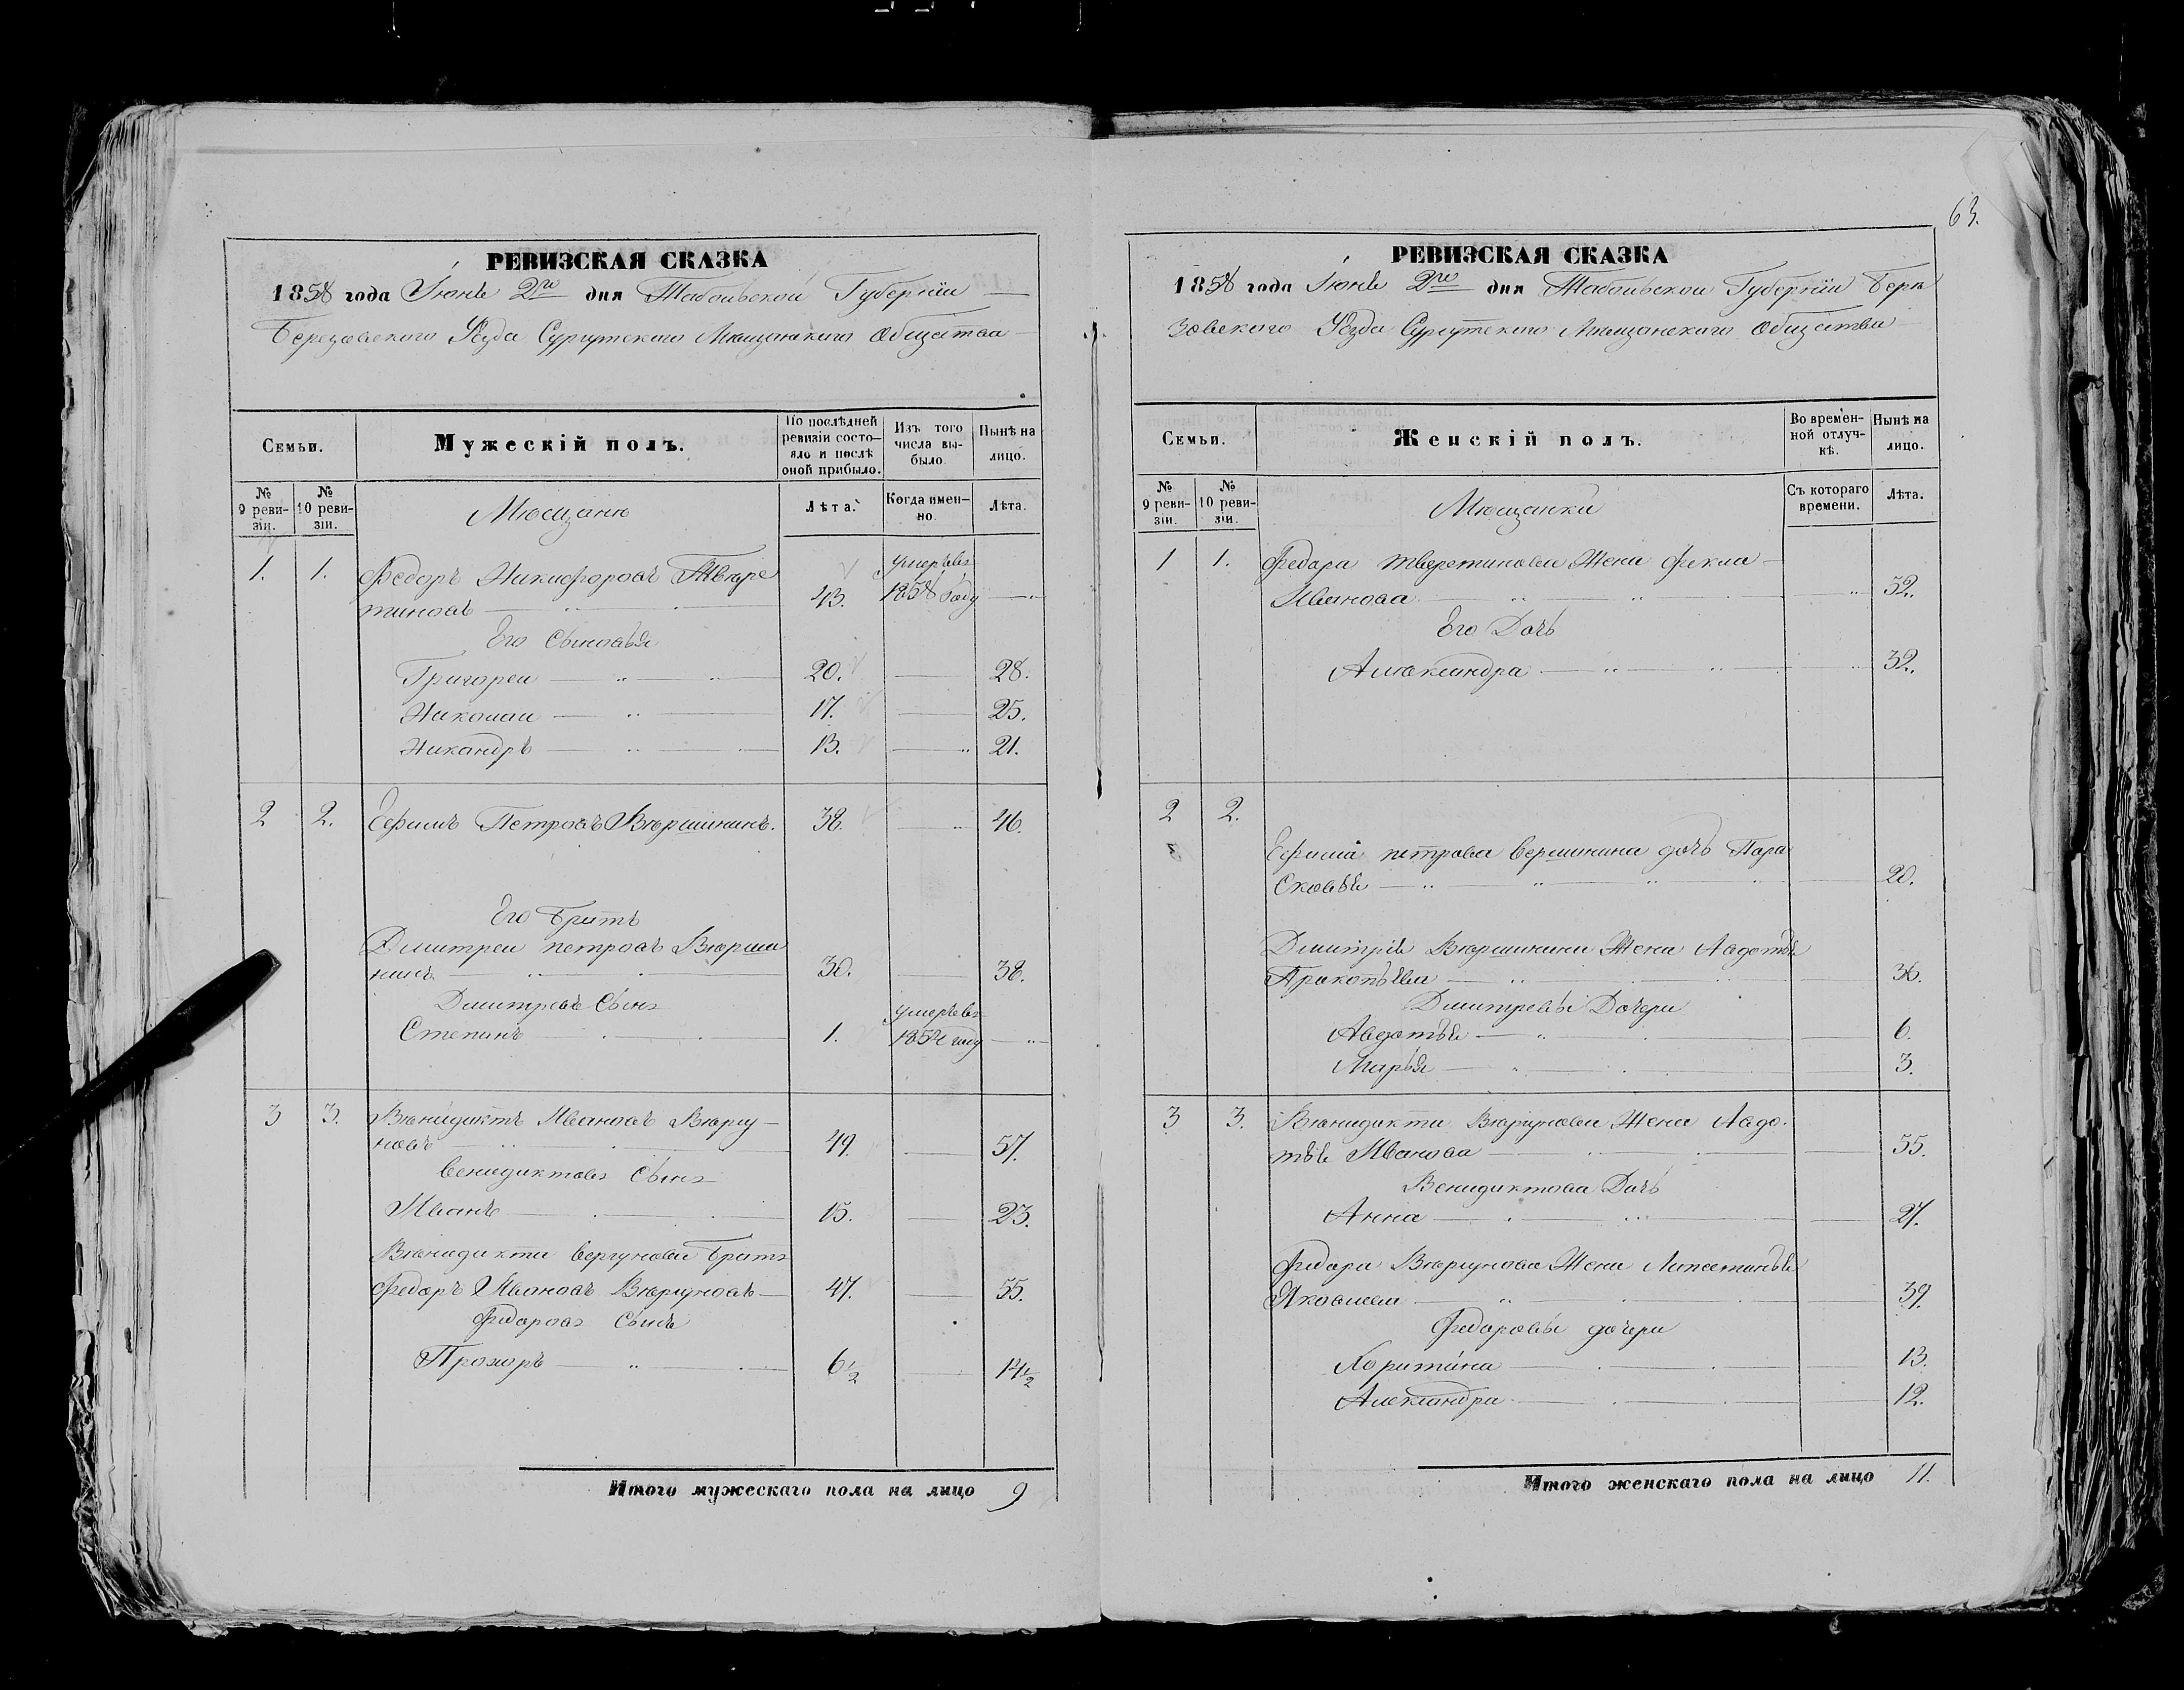 63.
РЕВИЗСКАЯ СКАЗКА
1858 года Июня 2го дня Тобольской Губернии
Березовскаго Уезда Сургутскаго Мещанскаго Общества
Семьи.
Мужескій полъ.
По послѣдней ревизіи состо-
яло и послѣ
оной прибыло.
Изъ того
числа вы-
было.
Нынѣ на
лицо.
№ 9 реви-
зіи.
№ 10 реви-
зіи.
Мещане
Лѣта.
Когда имен-
но.
Лѣта.
1. 1. Федоръ Никифоровъ Твере
тиновъ 43. умеръ въ 1858 году
Его Сыновья
Григореи 20. 28.
Николаи 17. 25.
Никандръ 13. 21.
2 2. Ефимъ Петровъ Вершининъ. 38. 46.
Его Братъ
Дмитреи петровъ Верши
нинъ 30. 38.
Дмитревъ Сынъ
Степанъ 1. умеръ въ году
3 3. Венидиктъ Ивановъ Вергу
новъ 49. 57.
Венидиктовъ Сынъ
Иванъ 15. 23.
Венидикта Вергунова Братъ
Федоръ Ивановъ Вергуновъ 47. 55.
Федоровъ Сынъ
Прохоръ 6½ 14½
Итого мужескаго пола на лицо 9
РЕВИЗСКАЯ СКАЗКА
1858 года Июня 2го дня Тобольской Губернии Бере
зовскаго Уезда Сургутскаго Мещанскаго Общества
Семьи.
Женскій полъ.
Во времен-
ной отлуч-
кѣ.
Нынѣ на
лицо.
№ 9 реви-
зіи.
№ 10 реви-
зіи.
Мещанки
Съ котораго
времени.
Лѣта.
1 1. Федора Тверетинова Жена Фекла
Иванова 52.
Его Дочь
Александра 32.
2 2.
Ефима петрова вершинина дочь Пара
сковья 20.
Дмитрія Вершинина Жена Авдотья
Прокопьева 36.
Дмитревы Дочери
Авдотья 6.
Марья 3.
3 3. Венидикта Вергунова Жена Авдо
тья Иванова 55.
Венидиктова Дочь
Анна 27.
Федора Вергунова Жена
Яковлева 39.
Федоровы дочери
Харитина 13.
Александра 12.
Итого женскаго пола на лицо 11.